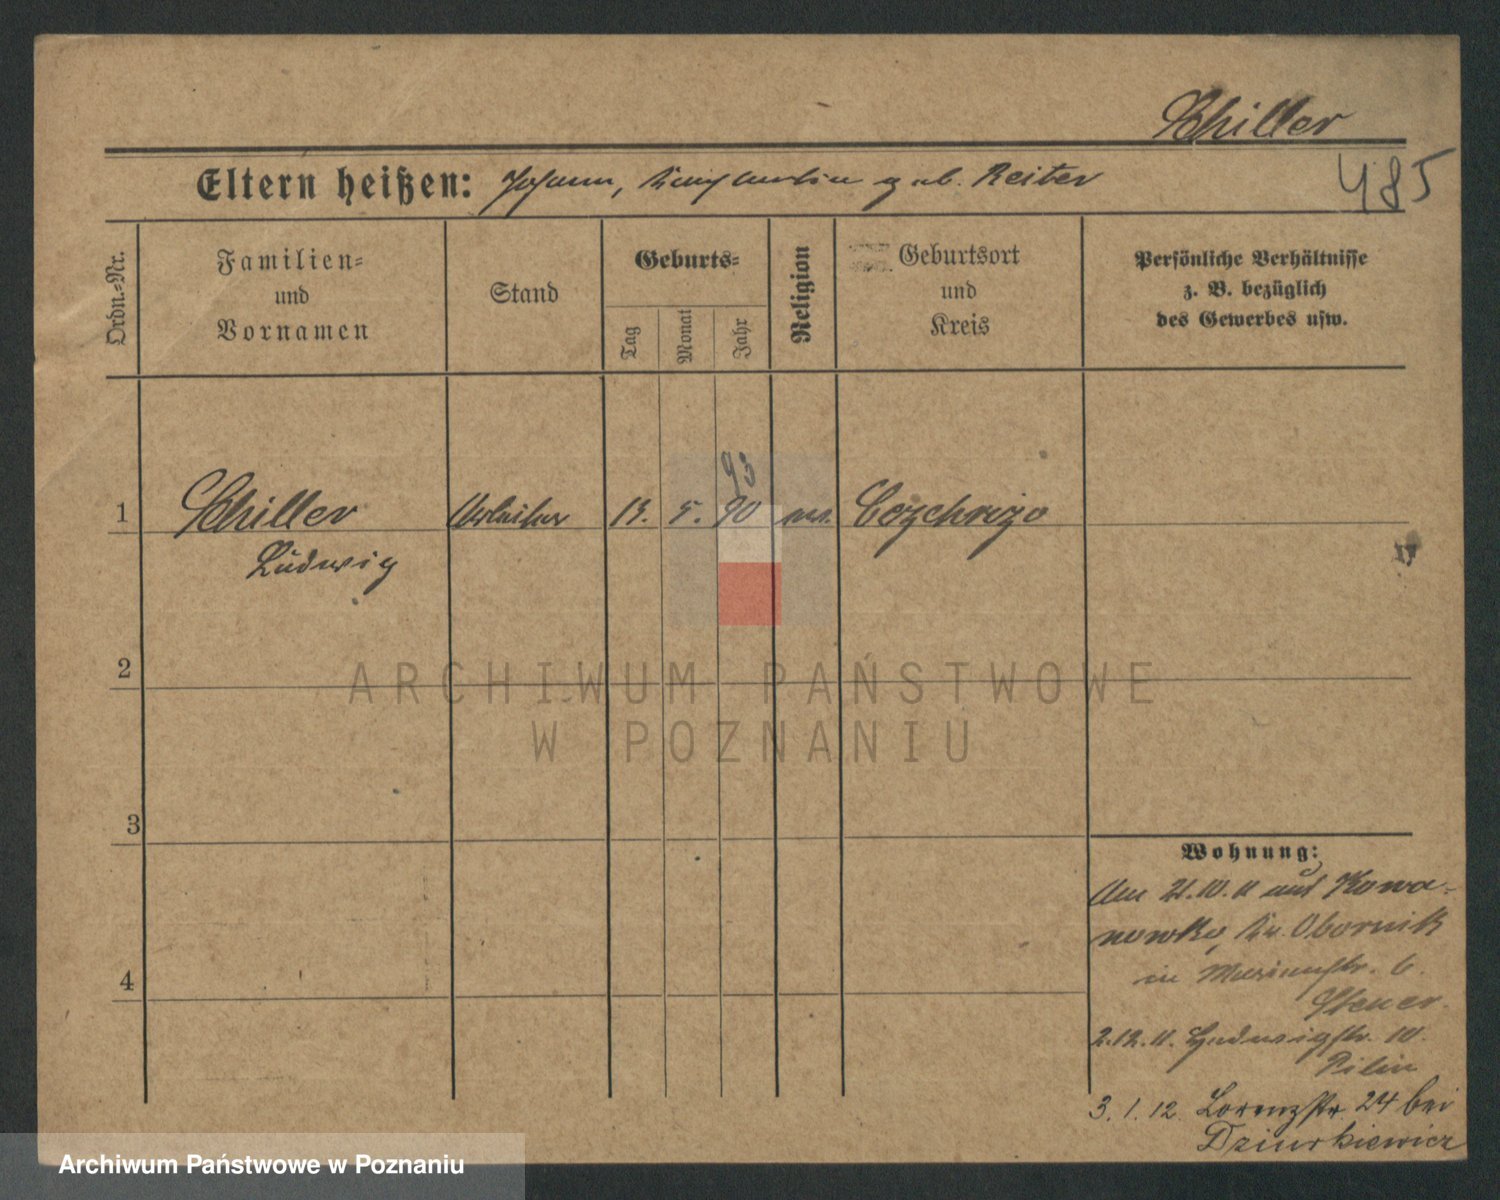 Schiller
485
Eltern heißen: Johann, geb. Reiter
Ordn.-Nr.
Familien-
und
Vornamen
Stand
Geburts-
Tag
Monat
Jahr
Religion
Geburtsort
und
Kreis
Persönliche Verhältnisse
z. B. bezüglich
des Gewerbes usw.
93
1 Schiller Arbeiter 13. 5. 90
Ludwig
2
ARCHIWUM PAŃSTWOWE
W POZNANIU
3
Wohnung:
Am 21.10.11 aus Kowa-
nowko, Kr. Obornik
in 6.
2.12.11. 10.
3.1.12 Lorenzstr. 24 bei
Dziurkiewicz
4
Archiwum Państwowe w Poznaniu